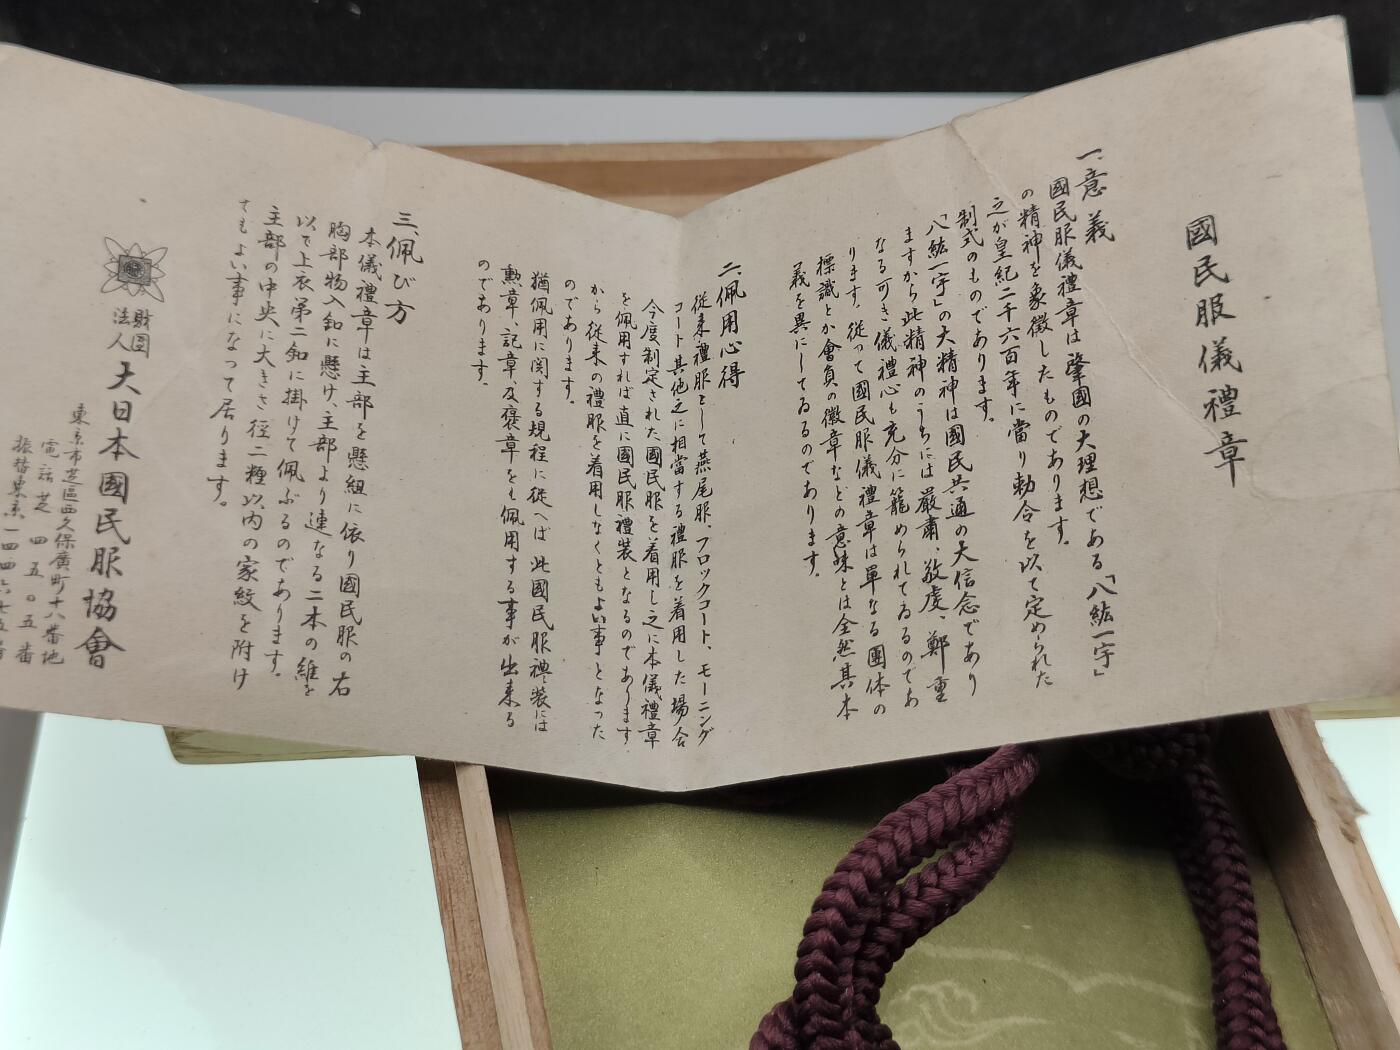 國民服儀禮章
一、意義
國民服儀禮章は肇國の大理想である「八紘一宇」
の精神を象徴したものであります。
之が皇紀二千六百年に當り勅令を以て定められた
制式のものであります。
「八紘一宇」の大精神は國民共通の大信念であり
ますから此精神のうちには嚴肅、敬虔、鄭重
なる可き儀禮心も充分に籠められてゐるのであ
ります。從って國民服儀禮章は單なる團体の
標識とか會員の徽章などの意味とは全然其本
義を異にしてゐるのであります。
二、佩用心得
從来禮服として燕尾服、フロックコート、モーニング
コート其他之に相當する禮服を着用した場合
今度制定された國民服を着用し之に本儀禮章
を佩用すれば直に國民服禮裝となるのであります。
から從来の禮服を着用しなくともよい事となった
のであります。
猶佩用に関する規程に從へば此國民服禮裝には
勲章、記章、及褒章をも佩用する事が出来る
のであります。
三、佩び方
本儀禮章は主部を懸組に依り國民服の右
胸部物入釦に懸け、主部より連なる二本の維を
以て上衣第二釦に掛けて佩ぶるのであります。
主部の中央に大きさ径二糎以内の家紋を附け
てもよい事になって居ります。
財團
法人
大日本國民服協會
東京市芝區西久保廣町十八番地
電話芝四五〇五番
振替東京一四四六七五番